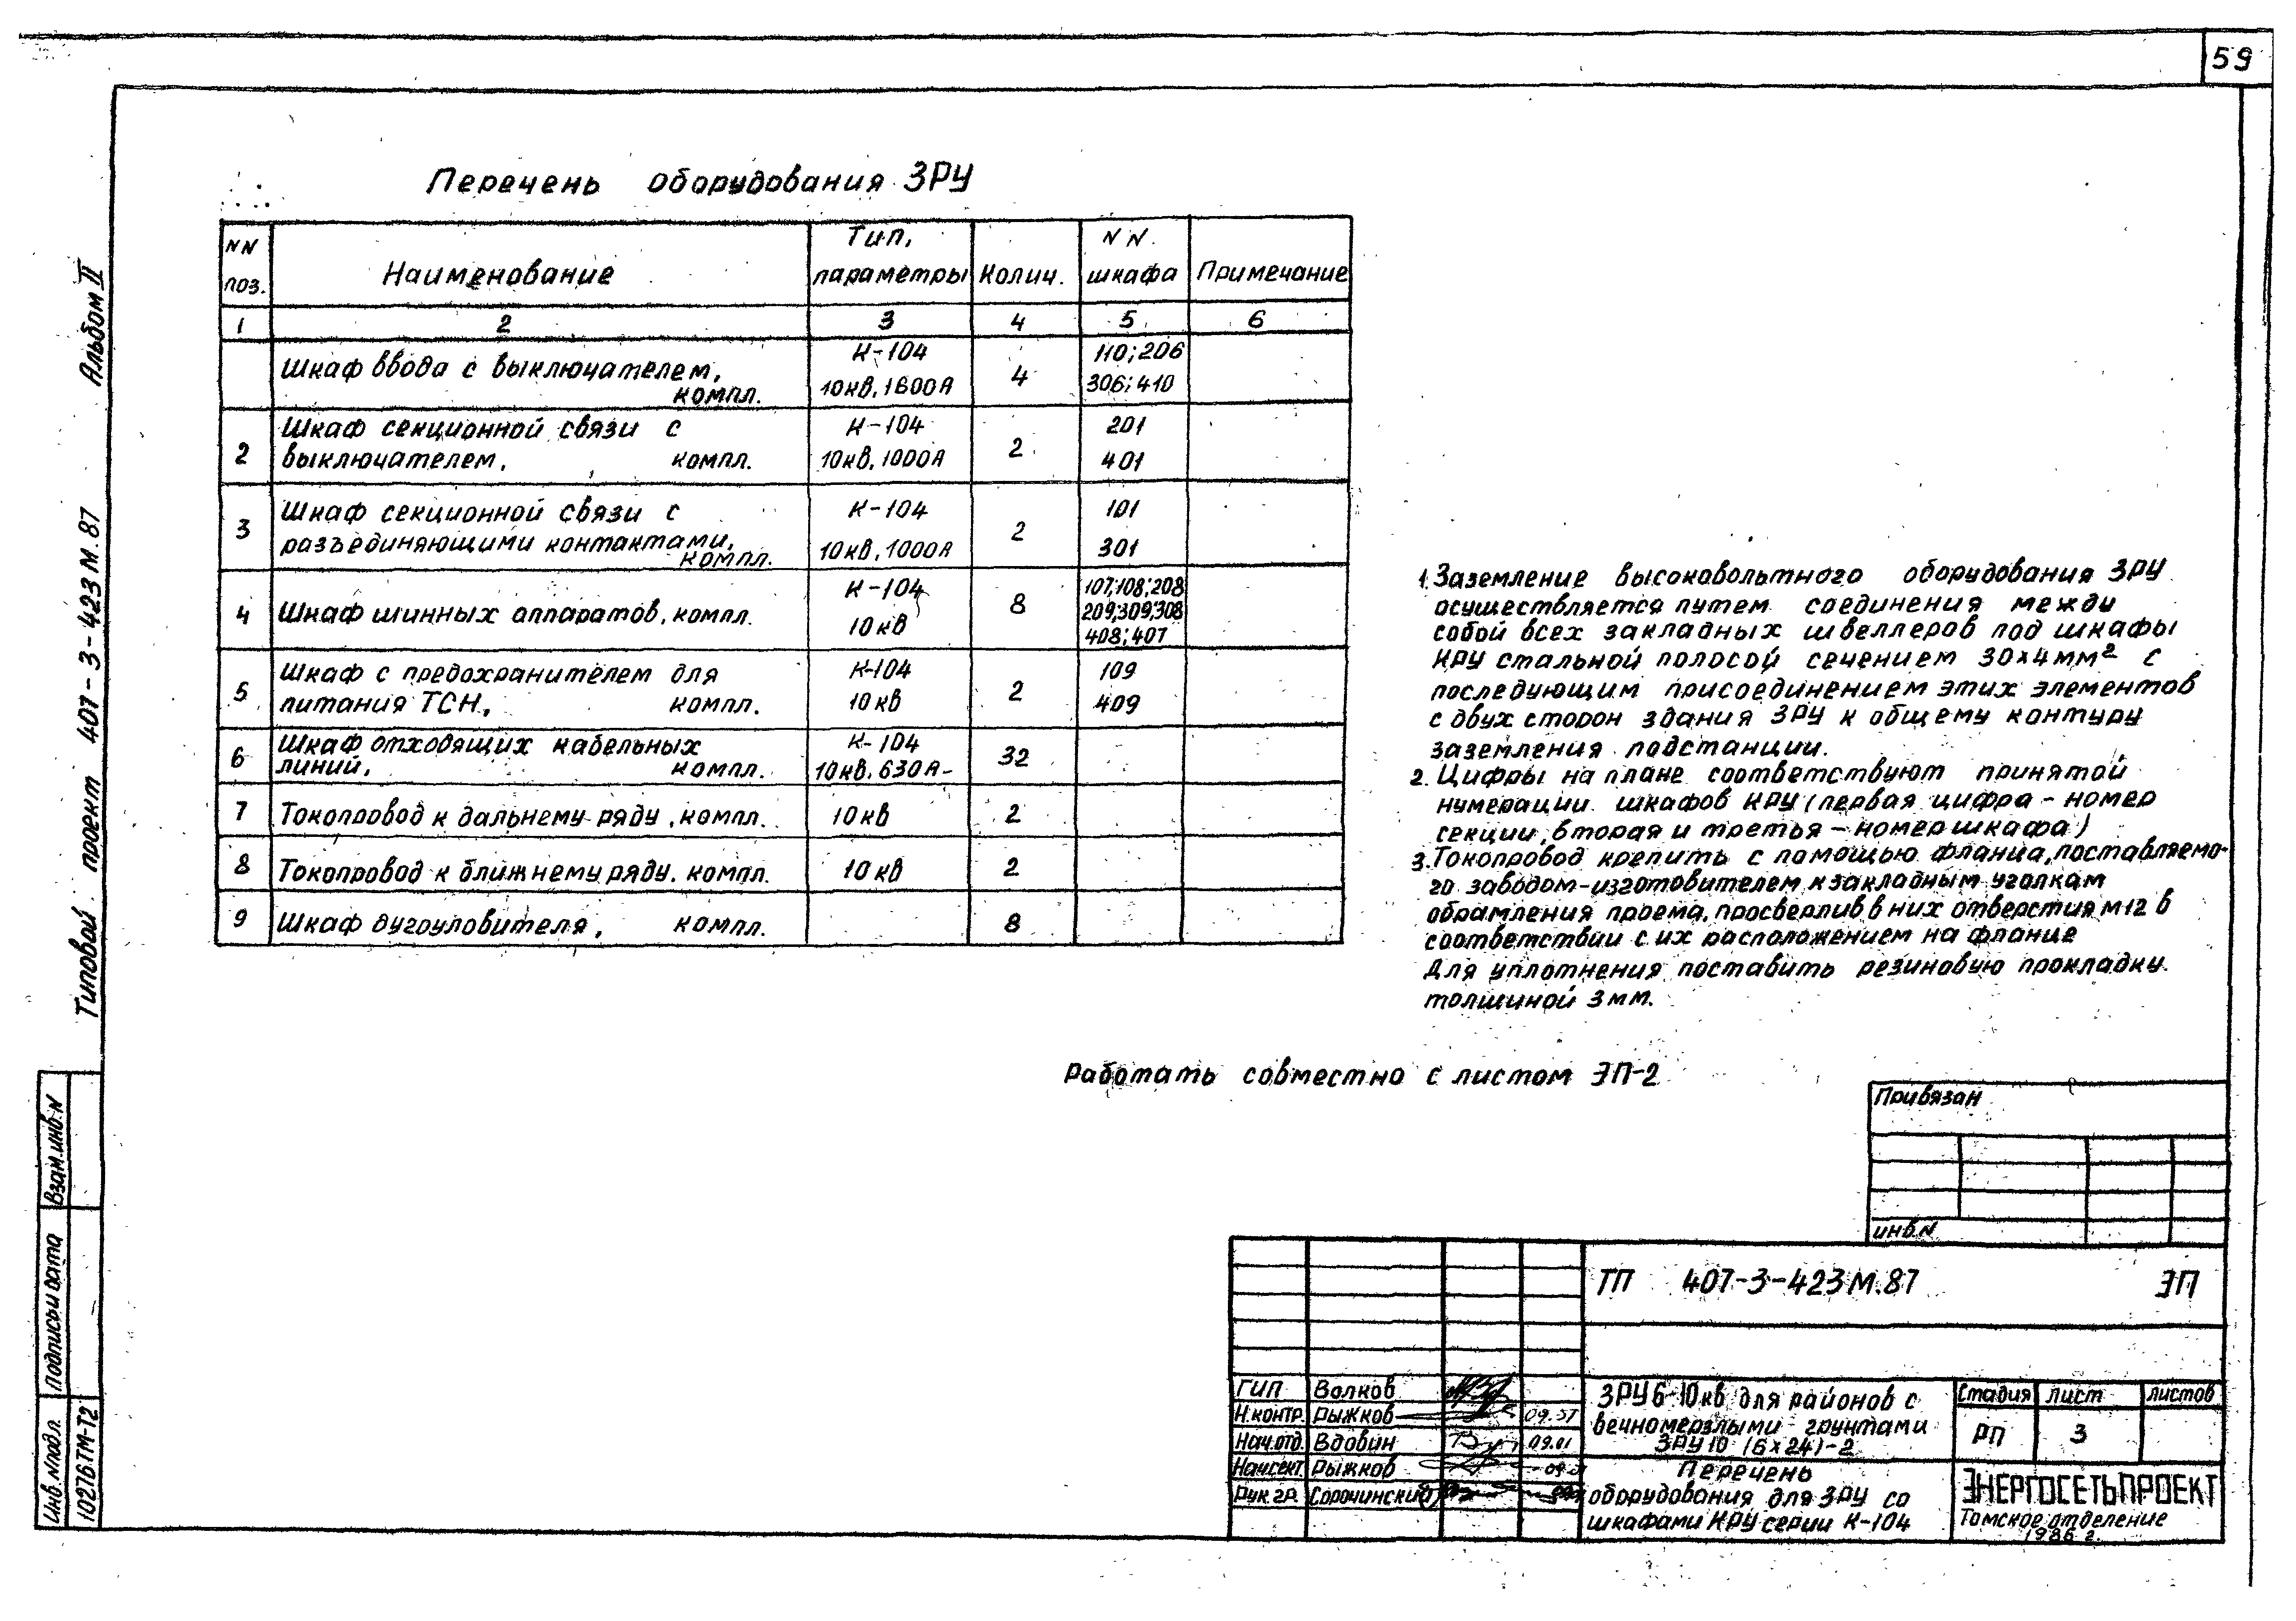 59
Перечень оборудования ЗРУ
NN поз.
Наименование
Тип, параметры
Колич.
NN шкафа
Примечание
1 2 3 4 5 6
Шкаф ввода с выключателем, компл.
К-104
10кв, 1600А
4
110; 206
306; 410
2
Шкаф секционной связи с
выключателем, компл.
К-104
10кв, 1000А
2
201
401
3
Шкаф секционной связи с
разъединяющими контактами, компл.
К-104
10кв, 1000А
2
101
301
4
Шкаф шинных аппаратов, компл.
К-104
10кв
8
107;108;208
209;309;308
408;407
5
Шкаф с предохранителем для
питания ТСН, компл.
К-104
10кв
2
109
409
6
Шкаф отходящих кабельных
линий, компл.
К-104
10кв, 630А
32
7 Токопровод к дальнему ряду, компл. 10кв 2
8 Токопровод к ближнему ряду, компл. 10кв 2
9 Шкаф дугоуловителя, компл. 8
1. Заземление высоковольтного оборудования ЗРУ
осуществляется путем соединения между
собой всех закладных швеллеров под шкафы
КРУ стальной полосой сечением 30х4мм² с
последующим присоединением этих элементов
с двух сторон здания ЗРУ к общему контуру
заземления подстанции.
2. Цифры на плане соответствуют принятой
нумерации шкафов КРУ (первая цифра - номер
секции, вторая и третья - номер шкафа)
3. Токопровод крепить с помощью фланца, поставляемо-
го заводом-изготовителем к закладным уголкам
обрамления проема, просверлив в них отверстия М12 в
соответствии с их расположением на фланце
Для уплотнения поставить резиновую прокладку
толщиной 3мм.
Работать совместно с листом ЭП-2
Привязан
инв.N
ТП 407-3-423М.87 ЭП
ГИП Волков
Н.контр. Рыжков
Нач.отд. Вдовин 09.01
Нач.сект. Рыжков
Рук.гр. Сорочинский
ЗРУ 6-10кв для районов с
вечномерзлыми грунтами
ЗРУ 10 (6х24)-2
Стадия Лист Листов
РП 3
Перечень
оборудования для ЗРУ со
шкафами КРУ серии К-104
ЭНЕРГОСЕТЬПРОЕКТ
Томское отделение
1986 г.
Типовой проект 407-3-423М.87 Альбом II
Взам.инв.N
Подпись и дата
Инв.Nподл.
10276ТМ-Т2